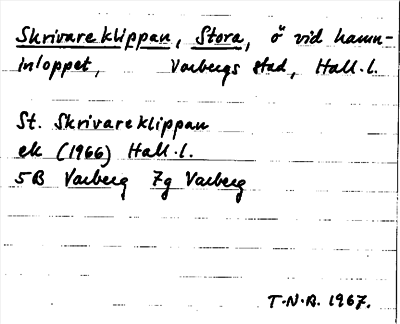 Skrivareklippan, Stora, ö vid hamn-
inloppet, Varbergs stad, Hall.l.
St. Skrivareklippan
ek (1966) Hall.l.
5B Varberg 7g Varberg
T.N.A. 1967.